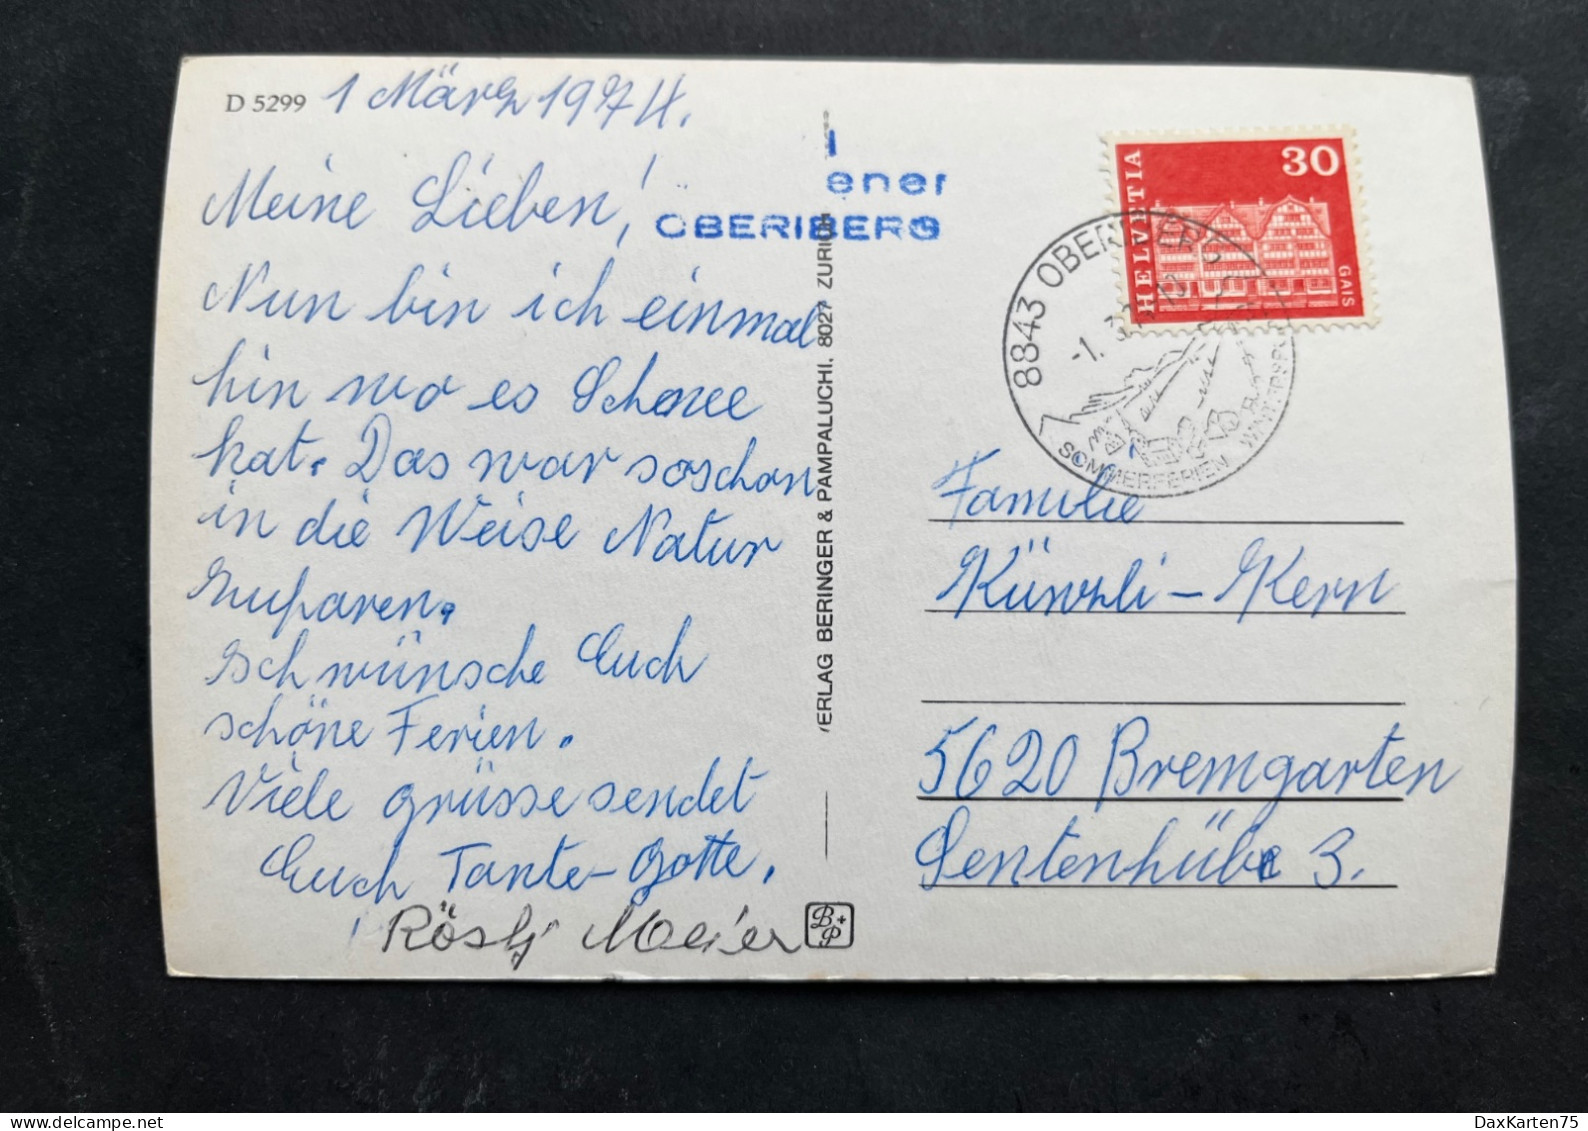 D 5299 1 März 1974.
Meine Lieben!
Nun bin ich einmal
hin wo es Schnee
hat. Das war soschon
in die Weise Natur
zu
Ich wünsche Euch
schöne Ferien.
Viele grüsse sendet
Euch Tante-Gotte,
Rösly Meier
ener
OBERIBERG
VERLAG BERINGER & PAMPALUCHI, 8027 ZURICH
B+P
HELVETIA
30
GAIS
8843 OBERIBERG
-1. 3. 12
SOMMERFERIEN WINTERSPORT
Familie
Künzli-Kern
5620 Bremgarten
3.
DaxKarten75